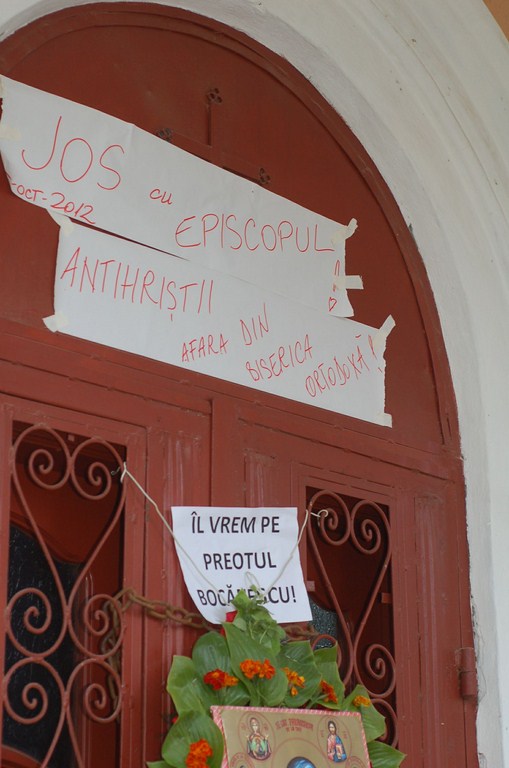 JOS cu
EPISCOPUL!
OCT-2012
ANTIHRIȘTII
AFARA DIN
BISERICA
ORTODOXĂ!
ÎL VREM PE
PREOTUL